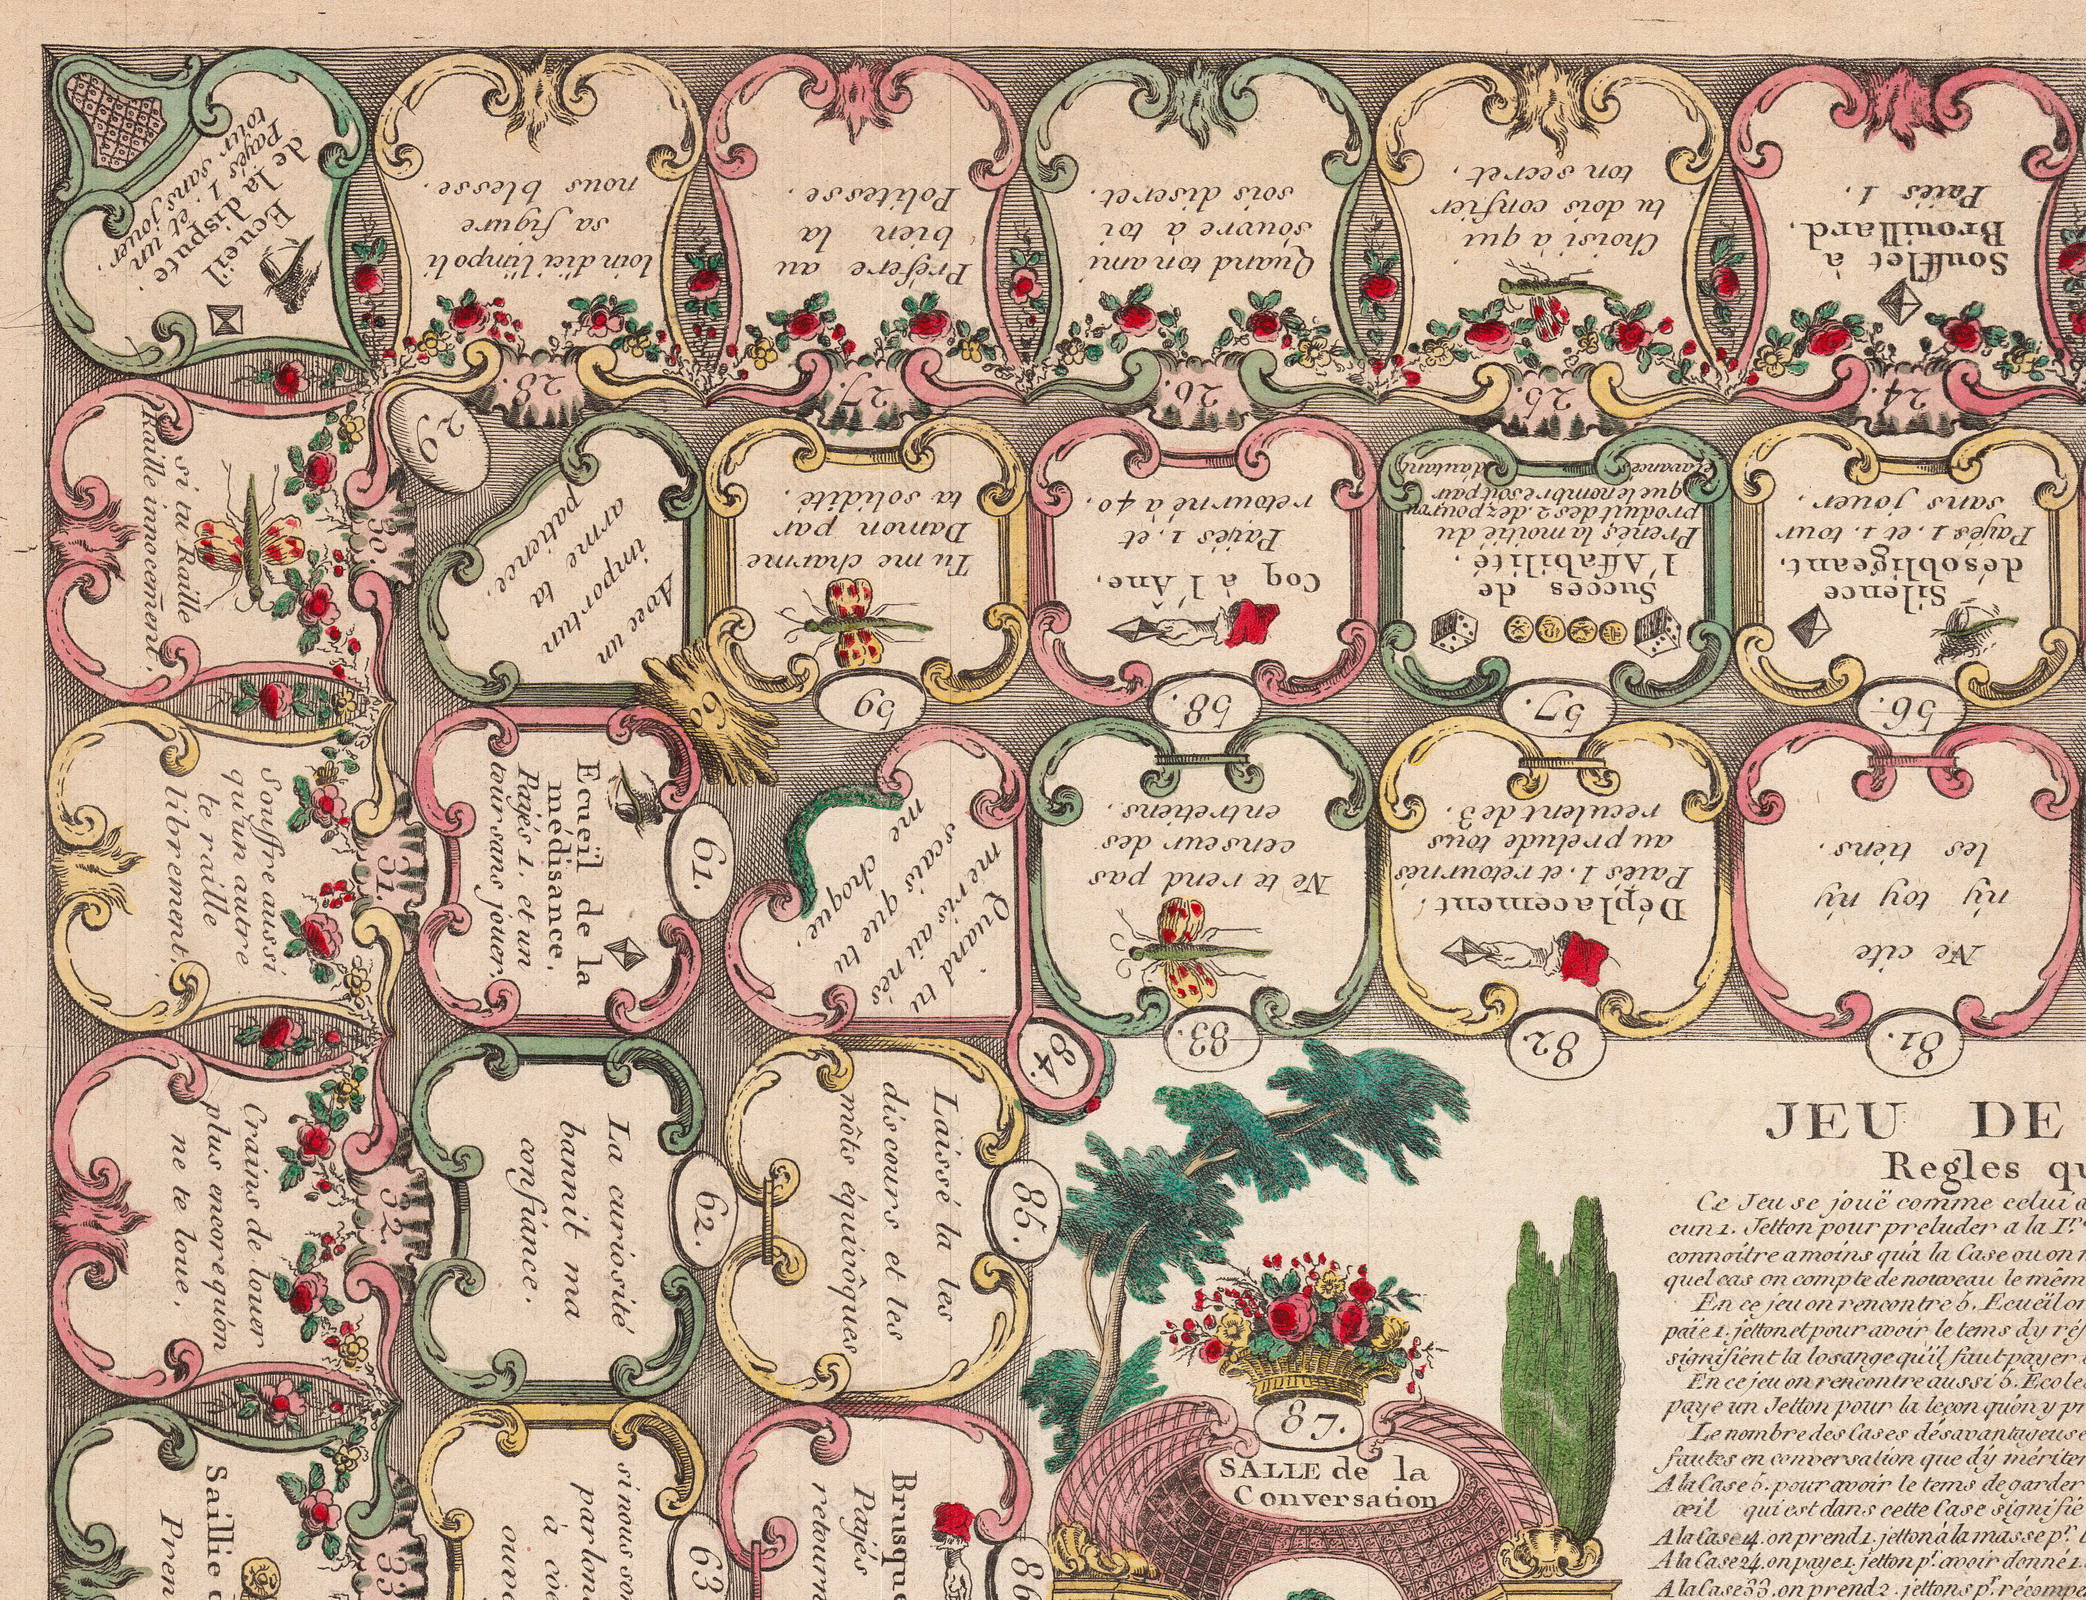 24.
Soufflet à
Brouillard.
Paiés 1.
25.
Choisi à qui
tu dois confier
ton secret.
26.
Quand ton ami
souvre à toi
sois discret.
27.
Préfere au
bien la
Politesse.
28.
loin dici l'impoli
sa figure
nous blesse.
29
Ecueil
de la dispute
Payés 1 et un
tour sans jouer.
30.
si tu Raille
Raille innocem̄ent.
31.
Souffre aussi
qu'un autre
te raille
librement.
32.
Crains de louer
plus encore quón
ne te loue.
33
Saillie
Pren
56.
Silence
désobligeant.
Payés 1. et 1. tour
sans jouer.
57.
Succes de
l'Affabilité.
Prenés la moitié du
produit des 2. dez pourvu
que le nombre soit pair
et avancé d'autant
58.
Coq à l'Ane.
Payés 1. et
retourné à 40.
59
Tu me charme
Damon par
ta solidité.
60
Avec un
importun
arme ta
patience.
61.
Ecueïl de la
médisance.
Payés 1. et un
tour sans jouer.
62.
La curiosité
bannit ma
confiance.
63
si nous son
parlons
à coe
ouve
81.
Ne cite
n'y toy n'y
les tiens.
82
Déplacement.
Paiés 1. et retournés
au prelude tous
reculent de 3.
83.
Ne te rend pas
censeur des
entretiens.
84.
Quand tu
me ris au nés
scais que tu
me choque.
85.
Laissé la les
discours et les
môts équivôques
86
Brusque
Payés
retourn
87.
SALLE de la
Conversation
JEU DE
Regles qu
Ce Jeu se jouë comme celui d
cun 1. Jetton pour preluder a la 1.re
connoitre a moins qu'à la Case ou on
quel cas on compte de nouveau le mêm
En ce jeu on rencontre 5. Ecueïl
païe 1. jetton et pour avoir le tems d'y
signifient la losange qu'il faut payer
En ce jeu on rencontre aussi 5. Ecole
paye un Jetton pour la leçon quón y pr
Le nombre des Cases désavantageuse
fautes en conversation que d'y mériter
A la Case 5. pour avoir le tems de garder
œil qui est dans cette Case signifie
A la Case 14. on prend 1. jetton à la masse pr.
A la Case 24. on paye 1. jetton pr. avoir donné 1.
A la Case 33. on prend 2. jettons pr. récompe